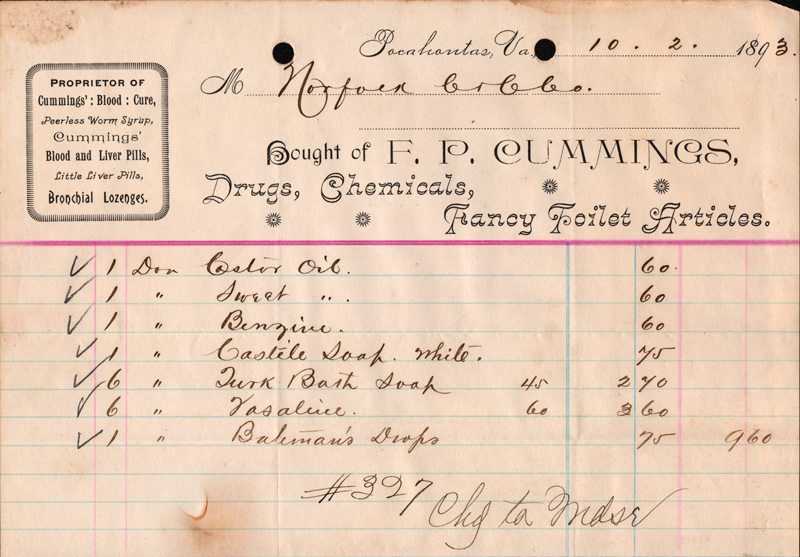 Pocahontas, Va., 10. 2. 1893.
M Norfolk
Bought of F. P. CUMMINGS,
Drugs, Chemicals,
Fancy Toilet Articles.
PROPRIETOR OF
Cummings' : Blood : Cure,
Peerless Worm Syrup,
Cummings'
Blood and Liver Pills,
Little Liver Pills,
Bronchial Lozenges.
✓ 1 Doz Castor Oil. 60
✓ 1 " Sweet " . 60
✓ 1 " Benzine. 60
✓ 1 " Castile Soap. White. 75
✓ 6 " Turk Bath Soap 45 2 70
✓ 6 " Vasaline. 60 3 60
✓ 1 " Bateman's Drops 75 9 60
#327
Chg to Mdse